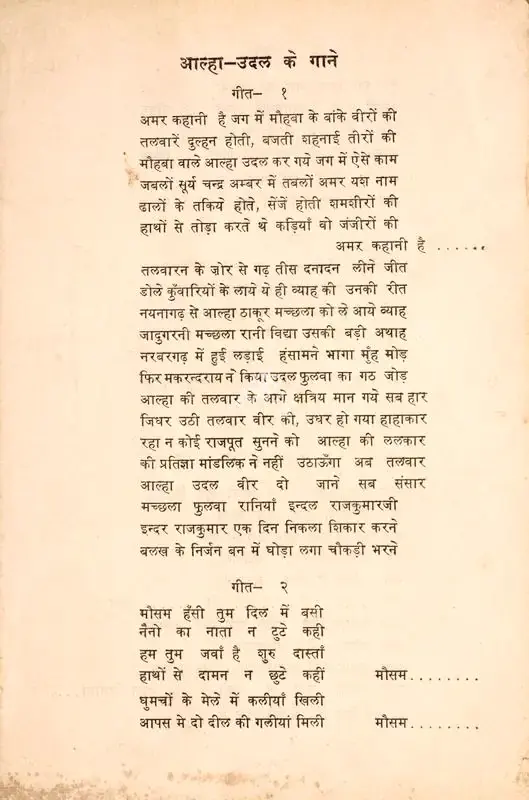 आल्हा-उदल के गाने
गीत- १
अमर कहानी है जग में मौहबा के बांके वीरों की
तलवारें दुल्हन होती, बजती शहनाई तीरों की
मौहबा वाले आल्हा उदल कर गये जग में ऐसे काम
जबलों सूर्य चन्द्र अम्बर में तबलों अमर यश नाम
ढालों के तकिये होते, सेंजें होती शमशीरों की
हाथों से तोड़ा करते थे कड़ियाँ वो जंजीरों की
अमर कहानी है ......
तलवारन के ज़ोर से गढ़ तीस दनादन लीने जीत
डोले कुँवारियों के लाये ये ही ब्याह की उनकी रीत
नयनागढ़ से आल्हा ठाकूर मच्छला को ले आये ब्याह
जादुगरनी मच्छला रानी विद्या उसकी बड़ी अथाह
नरबरगढ़ में हुई लड़ाई हंसामने भागा मुँह मोड़
फिर मकरन्दराय ने किया उदल फुलवा का गठ जोड़
आल्हा की तलवार के आगे क्षत्रिय मान गये सब हार
जिधर उठी तलवार वीर की, उधर हो गया हाहाकार
रहा न कोई राजपूत सुनने को आल्हा की ललकार
की प्रतिज्ञा मांडलिक ने नहीं उठाऊँगा अब तलवार
आल्हा उदल वीर दो जाने सब संसार
मच्छला फुलवा रानियाँ इन्दल राजकुमारजी
इन्दर राजकुमार एक दिन निकला शिकार करने
बलख के निर्जन बन में घोड़ा लगा चौकड़ी भरने
गीत- २
मौसम हँसी तुम दिल में बसी
नैनो का नाता न टुटे कही
हम तुम जवाँ है शुरु दास्ताँ
हाथों से दामन न छुटे कहीं मौसम........
घुमचों के मेले में कलीयाँ खिली
आपस मे दो दील की गलीयां मिली मौसम........